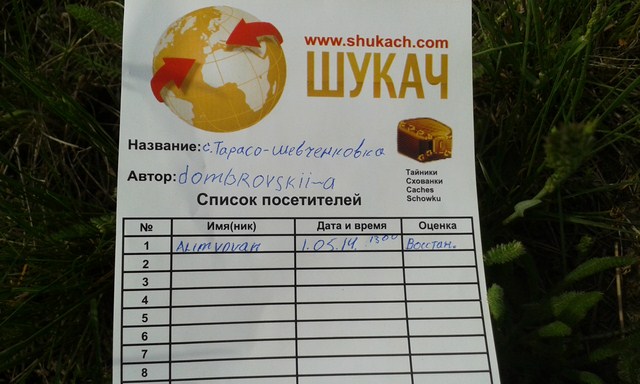 www.shukach.com
ШУКАЧ
Название: с. Тарасо-Шевченковка
Автор: dombrovskii-a
Тайники
Схованки
Caches
Schowku
Список посетителей
№ Имя(ник) Дата и время Оценка
1 1.05.14. 13:00 Восстан.
2
3
4
5
6
7
8